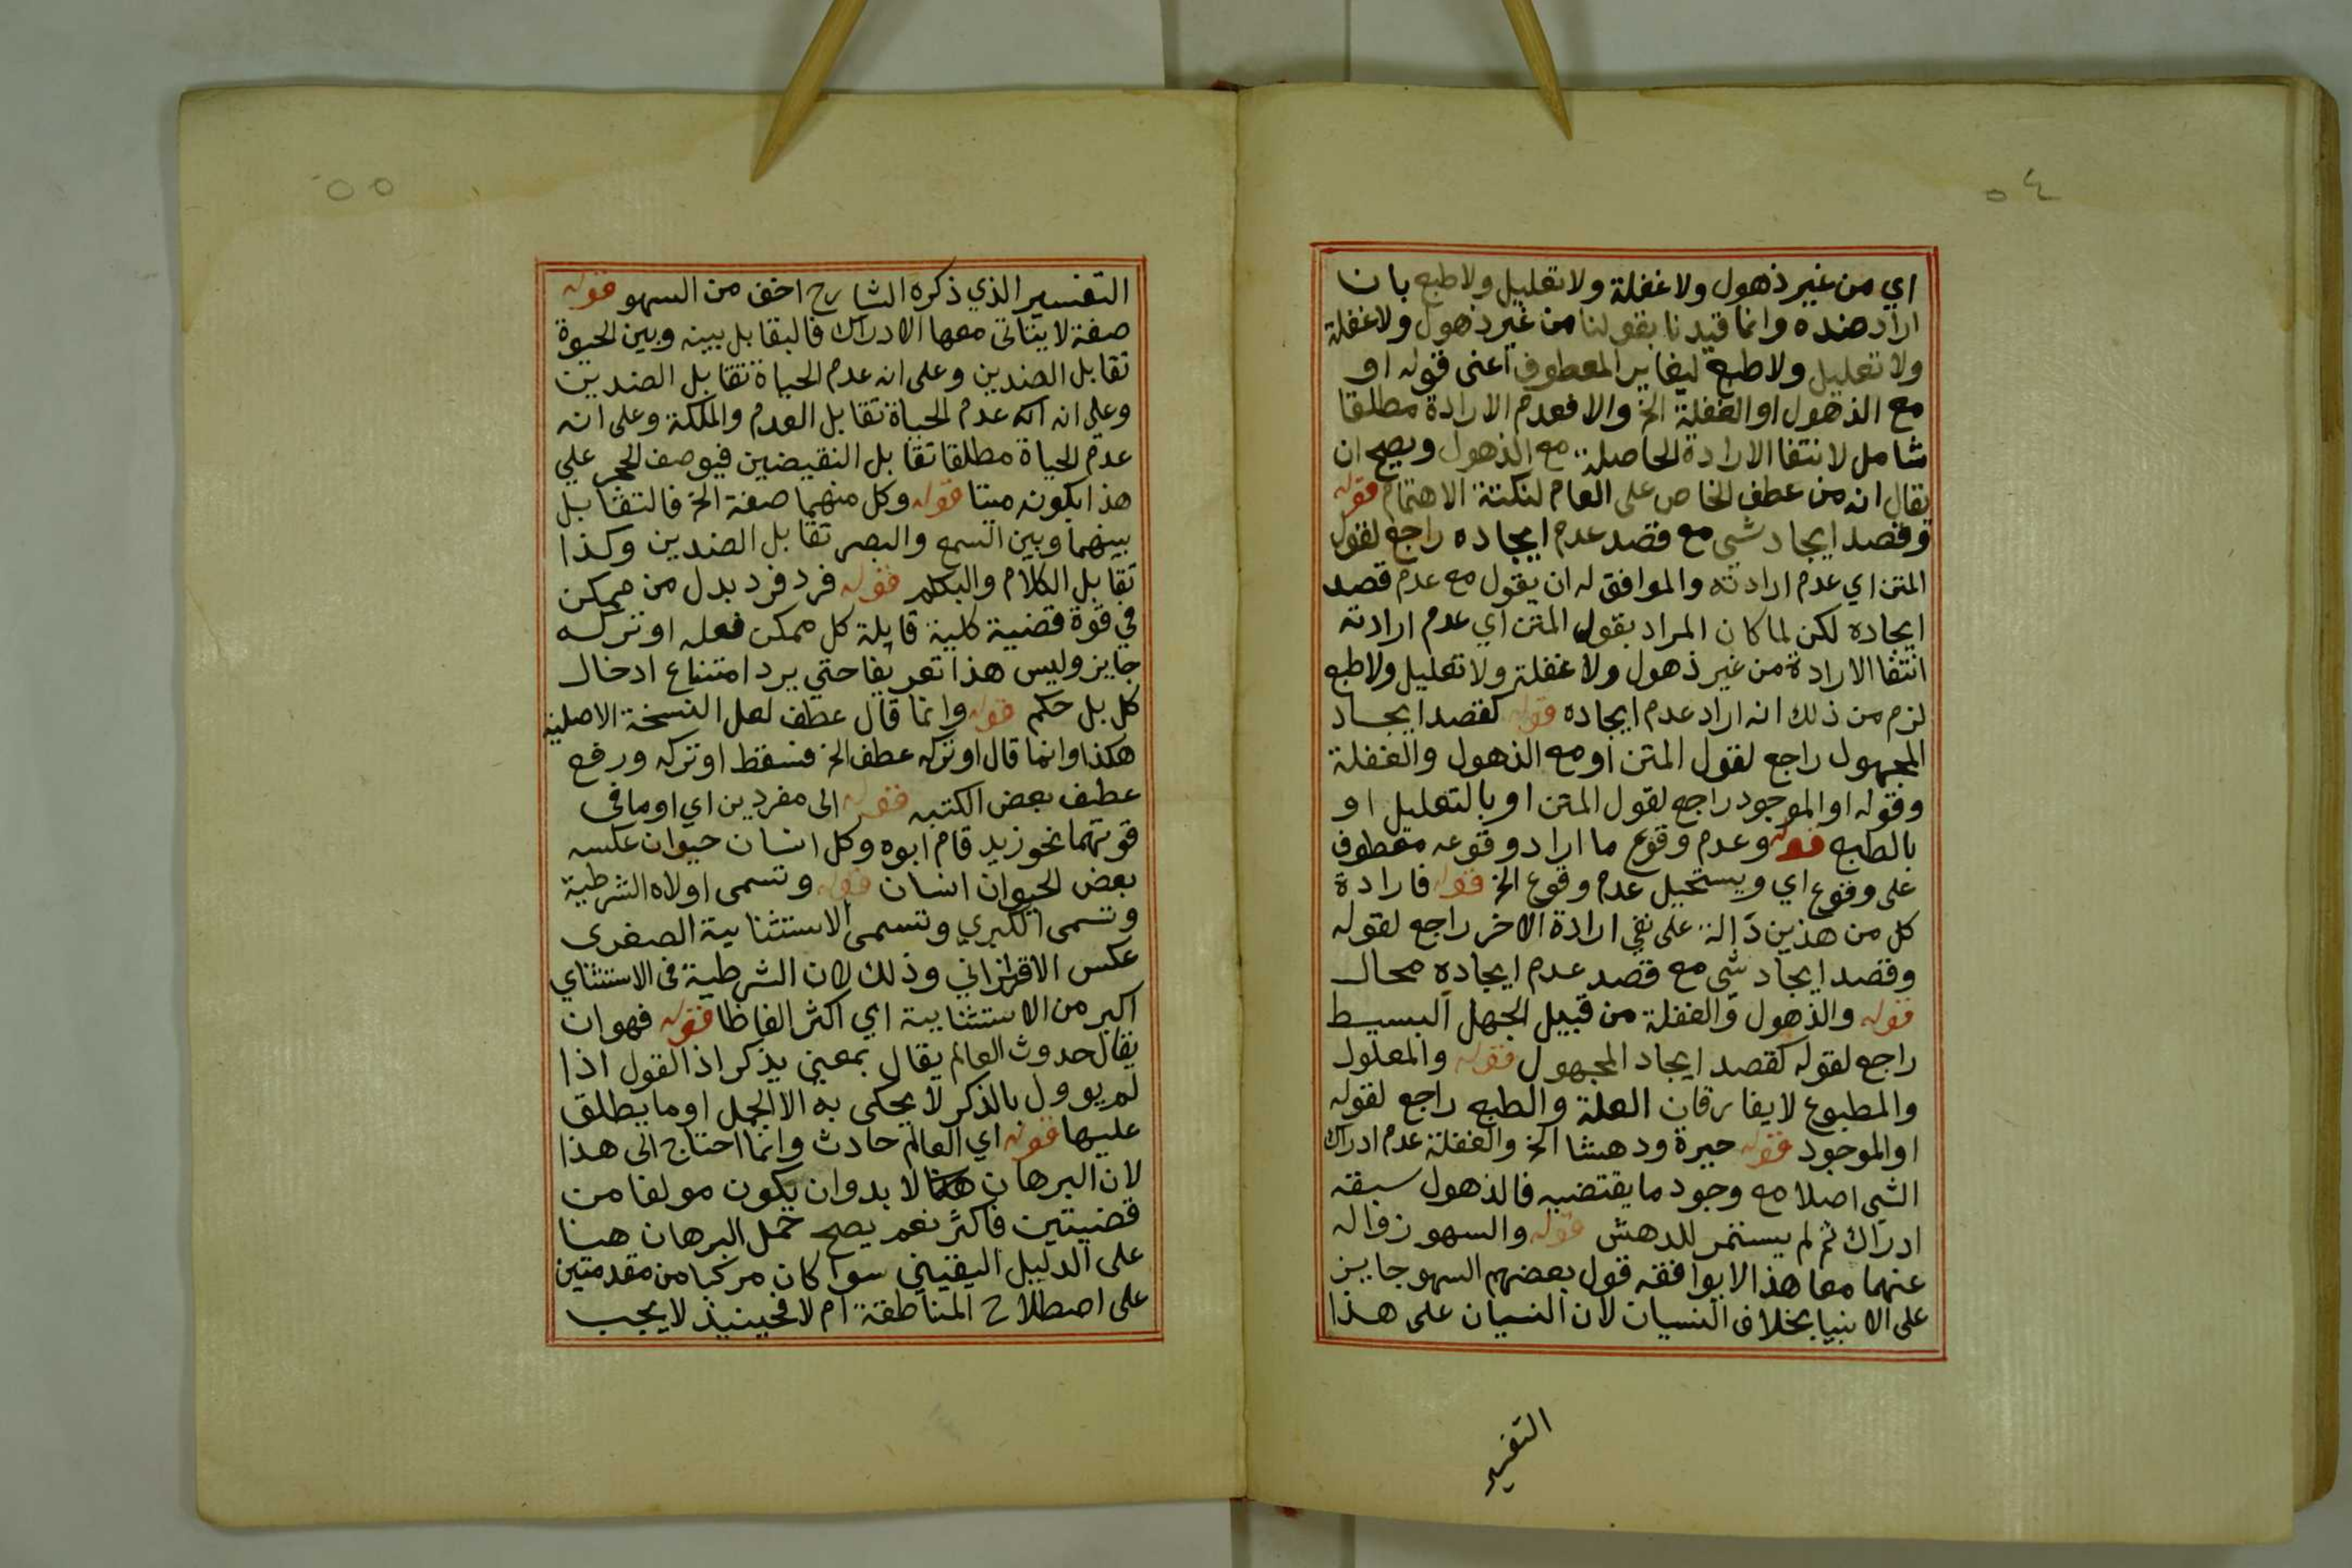 ٥٤
اي من غير ذهول ولا غفلة ولا تعليل ولا طبع بان
اراد ضده وانما قيدنا بقولنا من غير ذهول ولا غفلة
ولا تعليل ولا طبع ليغاير المعطوف اعنى قوله او
مع الذهول او الغفلة الخ والا فعدم الارادة مطلقا
شامل لانتفا الارادة الحاصلة مع الذهول ويصح ان
يقال انه من عطف الخاص على العام لنكتة الاهتمام قوله
وقصد ايجاد شي مع قصد عدم ايجاده راجع لقول
المتن اي عدم ارادته والموافق له ان يقول مع عدم قصد
ايجاده لكن لما كان المراد بقول المتن اي عدم ارادته
انتفا الارادة من غير ذهول ولا غفلة ولا تعليل ولا طبع
لزم من ذلك انه اراد عدم ايجاده قوله كقصد ايجاد
المجهول راجع لقول المتن او مع الذهول والغفلة
وقوله او الموجود راجع لقول المتن او بالتعليل او
بالطبع قوله وعدم وقوع ما اراد وقوعه معطوف
على وقوع اي ويستحيل عدم وقوع الخ قوله فارادة
كل من هذين دالة على نفي ارادة الاخر راجع لقوله
وقصد ايجاد شي مع قصد عدم ايجاده محال
قوله والذهول والغفلة من قبيل الجهل البسيط
راجع لقوله كقصد ايجاد المجهول قوله والمعلول
والمطبوع لا يفارقان العلة والطبع راجع لقوله
او الموجود قوله حيرة ودهشا الخ والغفلة عدم ادراك
الشي اصلا مع وجود ما يقتضيه فالذهول سبقه
ادراك ثم لم يستمر للدهش قوله والسهو زواله
عنهما معا هذا لا يوافقه قول بعضهم السهو جايز
على الانبيا بخلاف النسيان لان النسيان على هذا
التفسير
٥٥
التفسير الذي ذكره الشارح اخف من السهو قوله
صفة لا يتاتى معها الادراك فالتقابل بينه وبين الحيوة
تقابل الضدين وعلى انه عدم الحياة تقابل الضدين
وعلى انه انه عدم الحياة تقابل العدم والملكة وعلى انه
عدم الحياة مطلقا تقابل النقيضين فيوصف الحجر علي
هذا بكونه ميتا قوله وكل منهما صفة الخ فالتقابل
بينهما وبين السمع والبصر تقابل الضدين وكذا
تقابل الكلام والبكم قوله فرد فرد بدل من ممكن
في قوة قضية كلية قايلة كل ممكن فعله او تركه
جايز وليس هذا تعريفا حتي يرد امتناع ادخال
كل بل حكم قوله وانما قال عطف لعل النسخة الاصلية
هكذا وانما قال او تركه عطف الخ فسقط او تركه ورفع
عطف بعض الكتبه قوله الى مفردين اي او ما في
قوتهما نحو زيد قام ابوه وكل انسان حيوان عكسه
بعض الحيوان انسان قوله وتسمى اولاه الشرطية
وتسمى الكبري وتسمى الاستثنايية الصغرى
عكس الاقتراني وذلك لان الشرطية في الاستثناي
اكبر من الاستثنايية اي اكثر الفاظا قوله فهو ان
يقال حدوث العالم يقال بمعني يذكر اذ القول اذا
لم يوول بالذكر لا يحكى به الا الجمل او ما يطلق
عليها قوله اي العالم حادث وانما احتاج الى هذا
لان البرهان لا بد وان يكون مولفا من
قضيتين فاكثر نعم يصح حمل البرهان هنا
على الدليل اليقيني سوا كان مركبا من مقدمتين
على اصطلاح المناطقة ام لا فحينيذ لا يجب